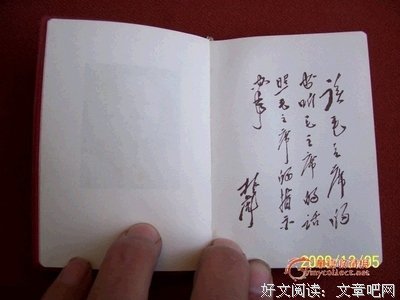 读毛主席的
书听毛主席的话
照毛主席的指示
办事
林彪
2009/12/05
mycollect.net
好文阅读：文章吧网